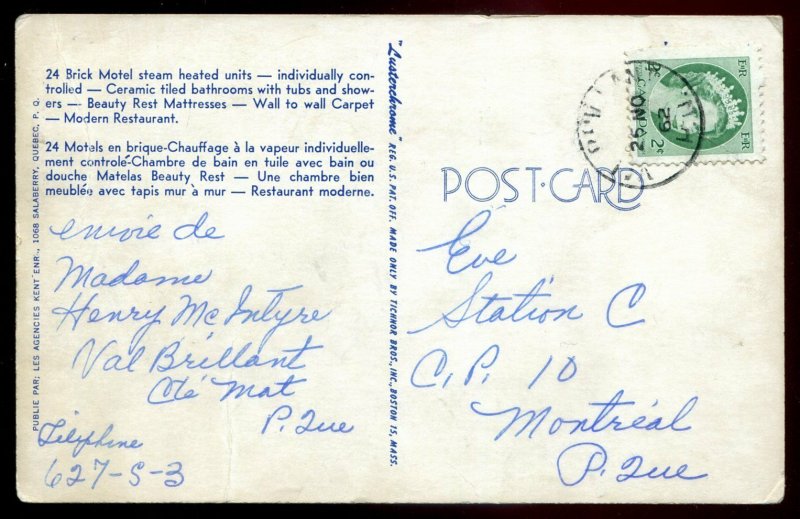 24 Brick Motel steam heated units — individually con-
trolled — Ceramic tiled bathrooms with tubs and show-
ers — Beauty Rest Mattresses — Wall to wall Carpet
— Modern Restaurant.
24 Motels en brique-Chauffage à la vapeur individuelle-
ment controlé-Chambre de bain en tuile avec bain ou
douche Matelas Beauty Rest — Une chambre bien
meublée avec tapis mur à mur — Restaurant moderne.
envoie de
Madame
Henry McIntyre
Val Brillant
Cté Mat
P. Que
Téléphone
627-S-3
PUBLIE PAR; LES AGENCIES KENT ENR., 1068 SALABERRY, QUEBEC, P. Q.
"Lusterchrome" REG. U.S. PAT. OFF. MADE ONLY BY TICHNOR BROS., INC., BOSTON 15, MASS.
POST-CARD
Eve
Station C
C.P. 10
Montréal
P. Que
26 NO
62
E II R
E II R
CANADA 2¢